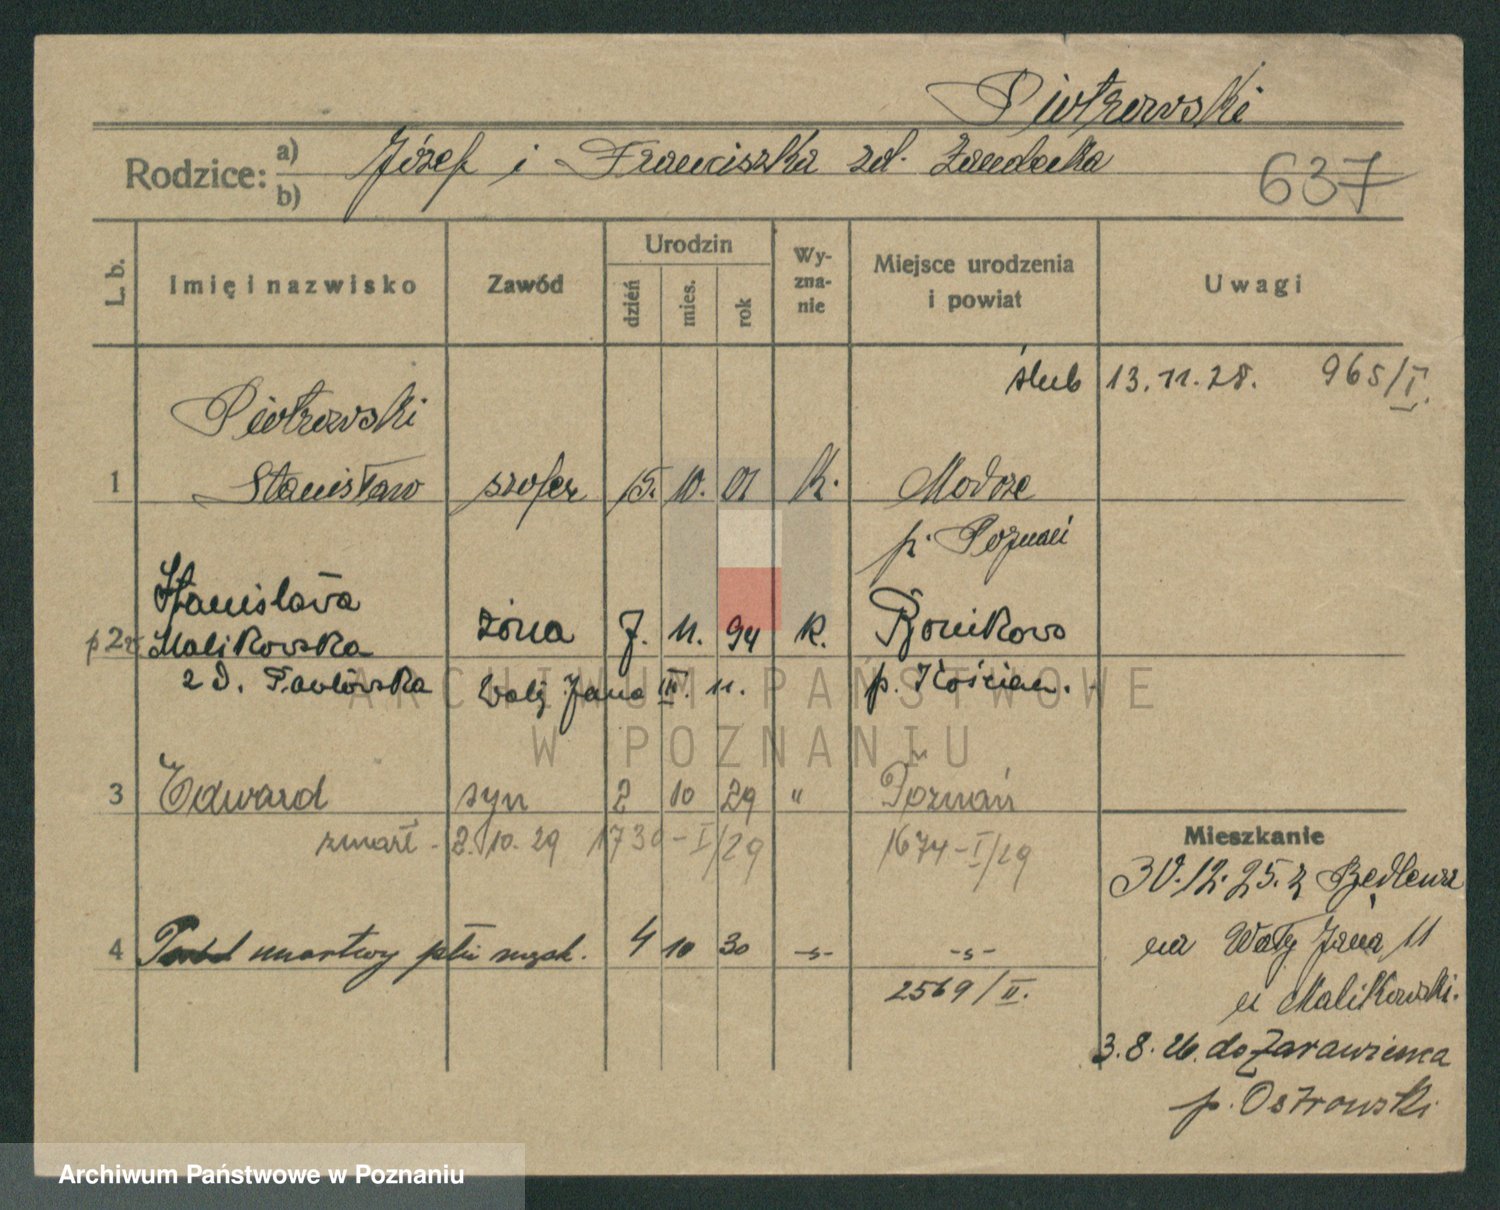 Piotrowski
Rodzice: a) b) Józef i Franciszka zd. Żandecka
637
L. b. Imię i nazwisko Zawód Urodzin dzień mies. rok Wyznanie Miejsce urodzenia i powiat Uwagi
ślub 13.11.28. 965/I.
Piotrowski
1 Stanisław szofer 15. 10. 01 k. Modrze
p. Poznań
Stanisława
2 Malikowska żona 7. 11. 94 k. Bonikowo
2 d. Pawłowska Wały Jana III. 11. p. Kościan.
3 Edward syn 2 10 29 " Poznań
zmarł - 2. 10. 29 1730-I/29 1674-I/29
4 martwy płci męsk. 4 10 30 -s- -s-
2569/II.
Mieszkanie
30.12.25. z Będlewa
na Wały Jana 11
u Malikowski.
3.8.26. do
p. Ostrowski
ARCHIWUM PAŃSTWOWE
W POZNANIU
Archiwum Państwowe w Poznaniu